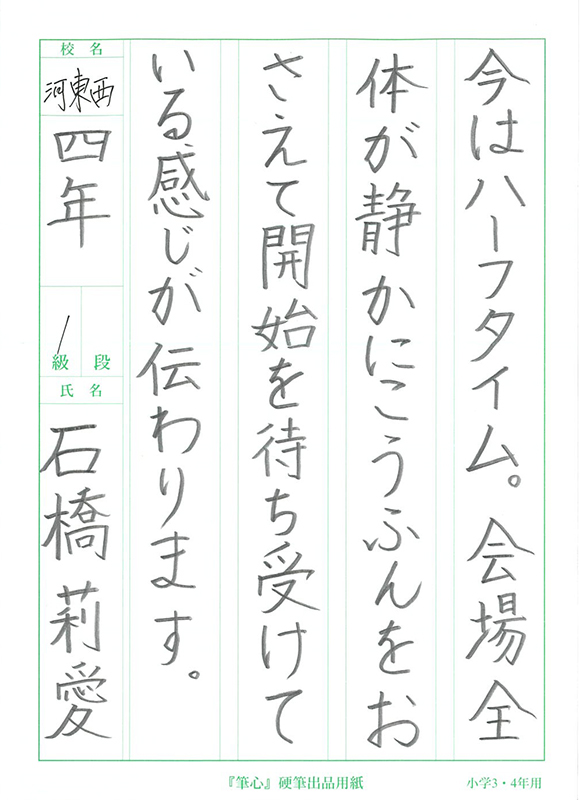 今はハーフタイム。会場全
体が静かにこうふんをお
さえて開始を待ち受けて
いる感じが伝わります。
校名
河東西
四年
1
級 段
氏名
石橋莉愛
『筆心』硬筆出品用紙
小学3・4年用